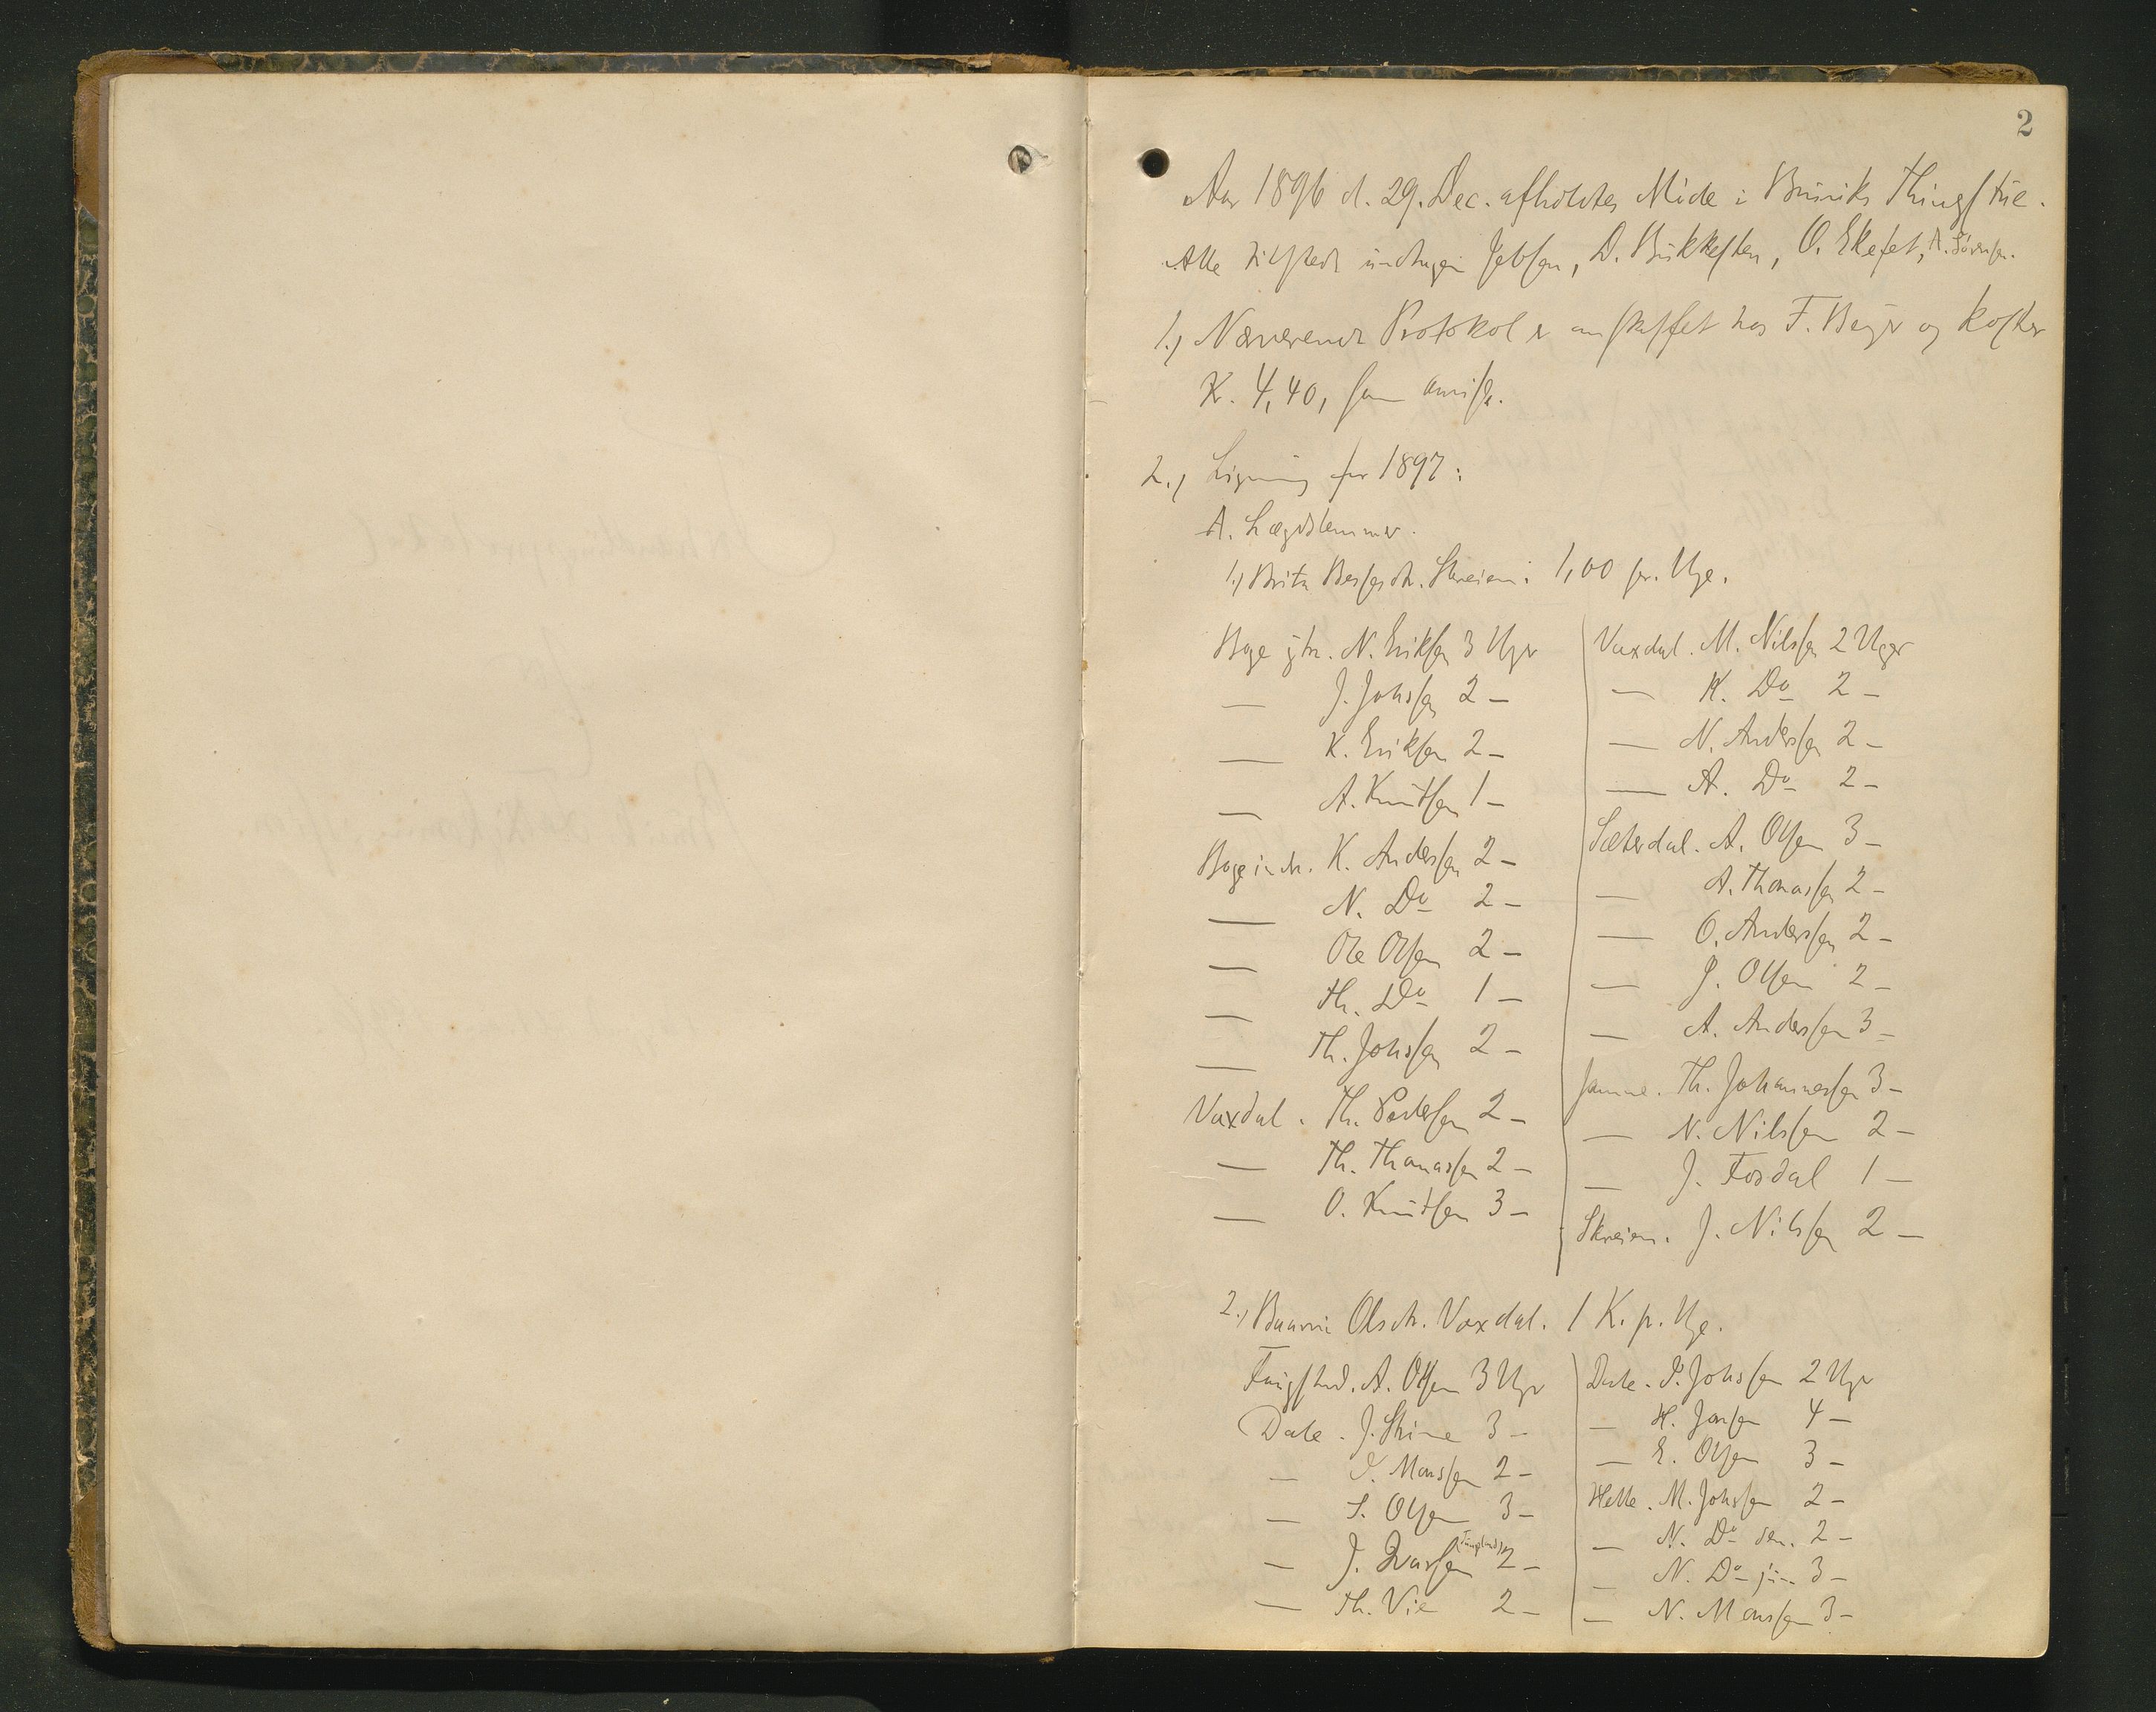 2
Aar 1896 d. 29. Dec. afholdtes Møde i Bruviks Thingstue.
Alle tilstede undtagen Jebsen, D. Bukkesten, O. Ekefet, A. Sørensen.
1.) Nærværende Protokol er anskaffet hos F. Beyer og koster
K. 4,40, som anvises.
2.) Ligning for 1897:
A. Lægdslemmer.
1.) Brita Bergesdr. Skreien: 1,00 pr. Uge.
Boge ytr. N. Eriksen 3 Uger
— J. Johssen 2 –
— K. Eriksen 2 –
— A. Knutsen 1 –
Boge indr. K. Anderssen 2 –
— N. Do 2 –
— Ole Olsen 2 –
— Th. Do 1 –
— Th. Johssen 2 –
Vaxdal. Th. Pedersen 2 –
— Th. Thomassen 2 –
— O. Knutsen 3 –
Vaxdal. M. Nilssen 2 Uger
— K. Do 2 –
— N. Anderssen 2 –
— A. Do 2 –
Sæterdal. A. Olsen 3 –
— A. Thomassen 2 –
— O. Anderssen 2 –
— J. Olsen 2 –
— A. Anderssen 3 –
Jamne. Th. Johannessen 3 –
— N. Nilssen 2 –
— J. Fosdal 1 –
Skreien. J. Nilssen 2 –
2.) Olsdr. Vaxdal. 1 K. p. Uge.
A. Olsen 3 Uger
Dale. J. Stime 3 –
— Monssen 2 –
— S. Olsen 3 –
— J. Ivarsen 2 –
— Th. Vie 2 –
Dale. Johssen 2 Uger
— H. Jonsen 4 –
— E. Olsen 3 –
Helle. M. Johssen 2 –
— N. Do sen. 2 –
— N. Do jun. 3 –
— N. Monssen 3 –